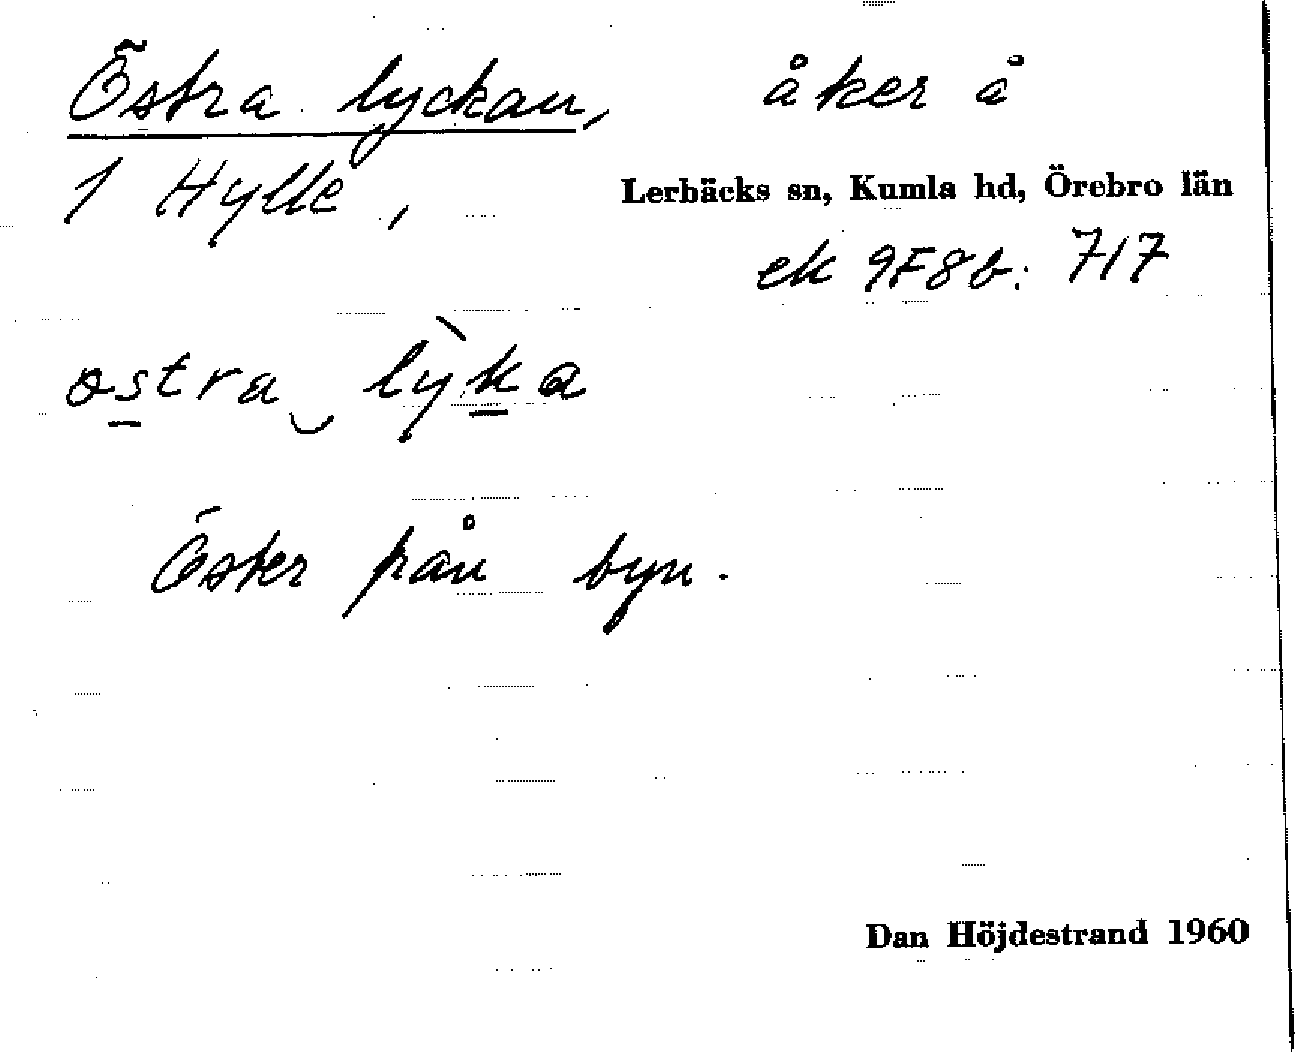 Östra lyckan, åker å
1 Hylle, Lerbäcks sn, Kumla hd, Örebro län
ek 9F8b: 717
östra lỳka
Öster från byn.
Dan Höjdestrand 1960